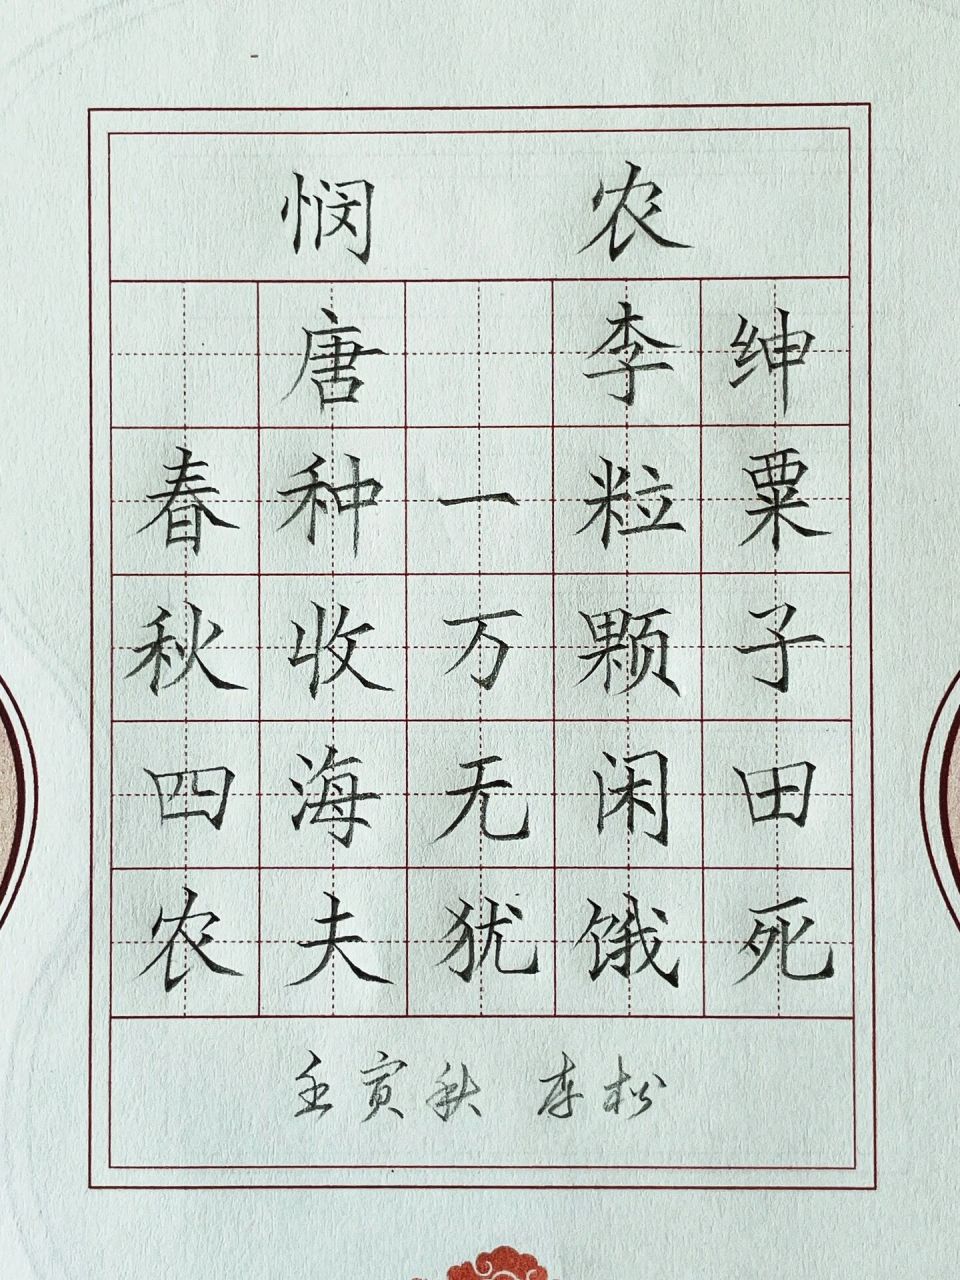 悯农
唐 李绅
春种一粒粟
秋收万颗子
四海无闲田
农夫犹饿死
壬寅秋 松